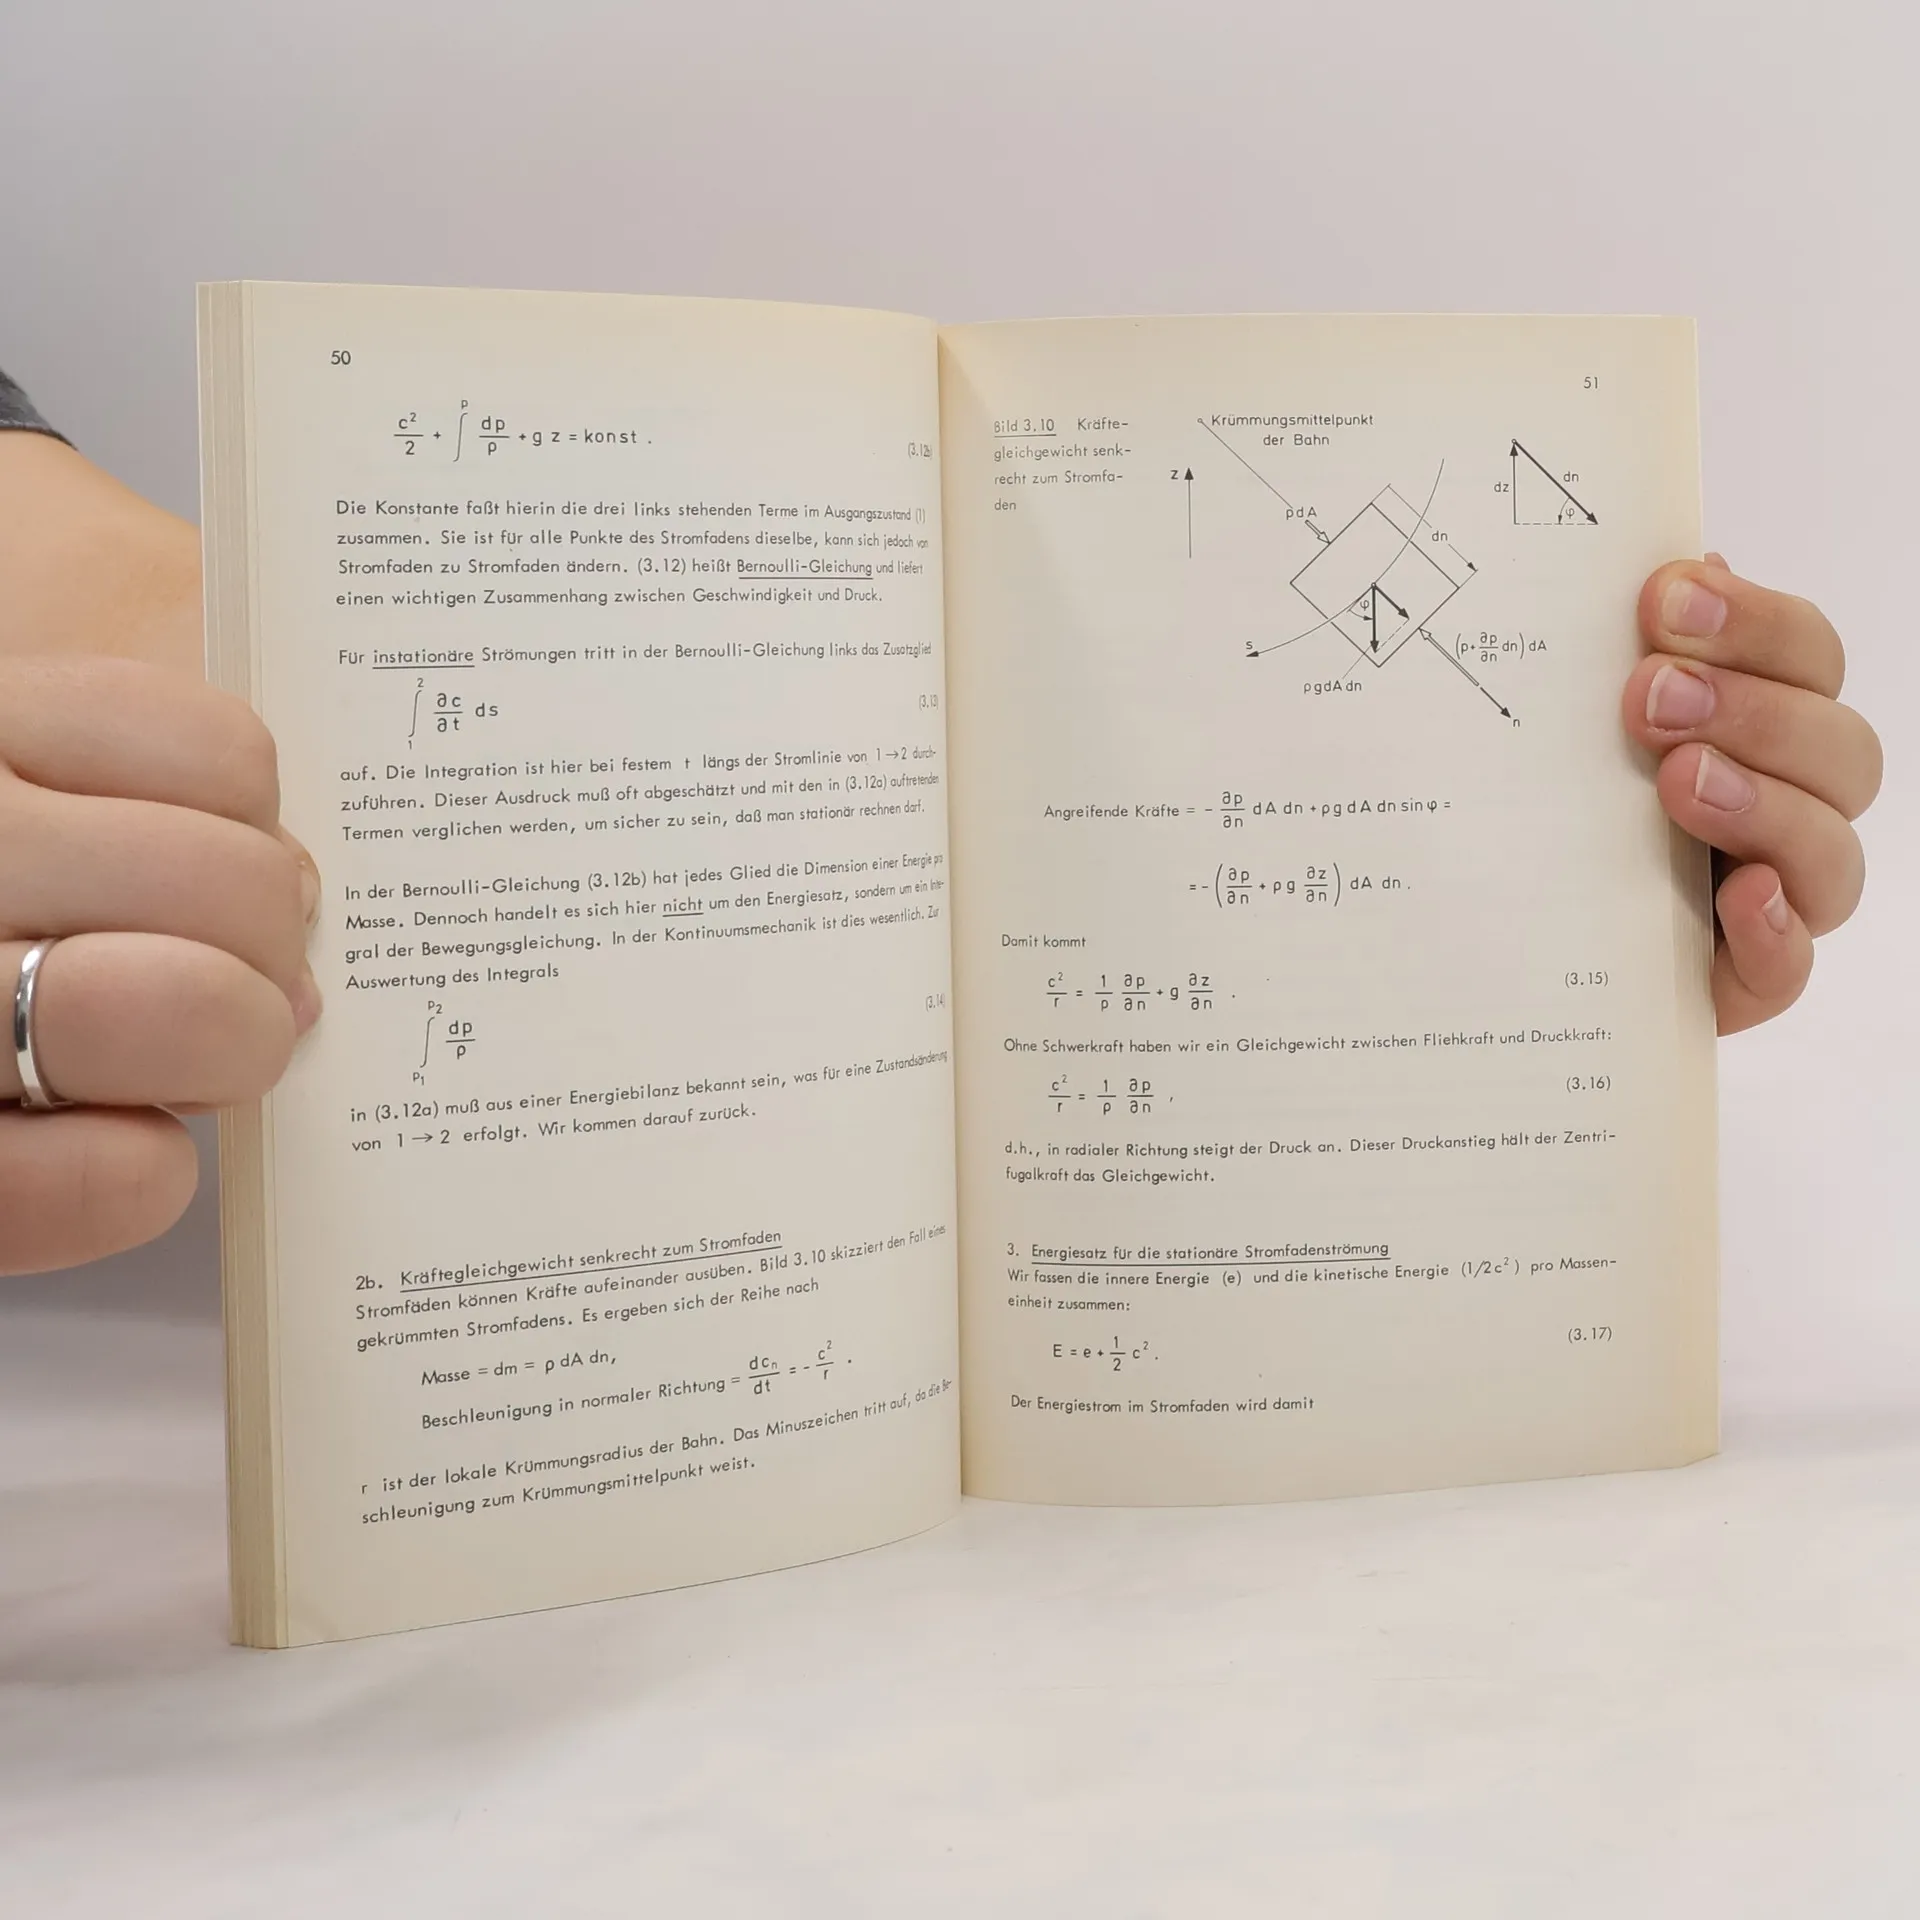 50
c²/2 + ∫^p dp/ρ + g z = konst .
(3.12b)
Die Konstante faßt hierin die drei links stehenden Terme im Ausgangszustand (1)
zusammen. Sie ist für alle Punkte des Stromfadens dieselbe, kann sich jedoch von
Stromfaden zu Stromfaden ändern. (3.12) heißt Bernoulli-Gleichung und liefert
einen wichtigen Zusammenhang zwischen Geschwindigkeit und Druck.
Für instationäre Strömungen tritt in der Bernoulli-Gleichung links das Zusatzglied
∫₁² ∂c/∂t ds
(3.13)
auf. Die Integration ist hier bei festem t längs der Stromlinie von 1→2 durch-
zuführen. Dieser Ausdruck muß oft abgeschätzt und mit den in (3.12a) auftretenden
Termen verglichen werden, um sicher zu sein, daß man stationär rechnen darf.
In der Bernoulli-Gleichung (3.12b) hat jedes Glied die Dimension einer Energie pro
Masse. Dennoch handelt es sich hier nicht um den Energiesatz, sondern um ein Inte-
gral der Bewegungsgleichung. In der Kontinuumsmechanik ist dies wesentlich. Zur
Auswertung des Integrals
∫_p₁^p₂ dp/ρ
(3.14)
in (3.12a) muß aus einer Energiebilanz bekannt sein, was für eine Zustandsänderung
von 1→2 erfolgt. Wir kommen darauf zurück.
2b. Kräftegleichgewicht senkrecht zum Stromfaden
Stromfäden können Kräfte aufeinander ausüben. Bild 3.10 skizziert den Fall eines
gekrümmten Stromfadens. Es ergeben sich der Reihe nach
Masse = dm = ρ dA dn,
Beschleunigung in normaler Richtung = dcₙ/dt = - c²/r .
r ist der lokale Krümmungsradius der Bahn. Das Minuszeichen tritt auf, da die Be-
schleunigung zum Krümmungsmittelpunkt weist.
51
Bild 3.10 Kräfte-
gleichgewicht senk-
recht zum Stromfa-
den
Krümmungsmittelpunkt
der Bahn
z
pdA
dn
φ
s
ρgdA dn
(p+∂p/∂n dn) dA
n
dz
dn
φ
Angreifende Kräfte = - ∂p/∂n dA dn + ρg dA dn sin φ =
= - (∂p/∂n + ρg ∂z/∂n) dA dn .
Damit kommt
c²/r = 1/ρ ∂p/∂n + g ∂z/∂n .
(3.15)
Ohne Schwerkraft haben wir ein Gleichgewicht zwischen Fliehkraft und Druckkraft:
c²/r = 1/ρ ∂p/∂n ,
(3.16)
d.h., in radialer Richtung steigt der Druck an. Dieser Druckanstieg hält der Zentri-
fugalkraft das Gleichgewicht.
3. Energiesatz für die stationäre Stromfadenströmung
Wir fassen die innere Energie (e) und die kinetische Energie (1/2c²) pro Massen-
einheit zusammen:
E = e + 1/2 c² .
(3.17)
Der Energiestrom im Stromfaden wird damit